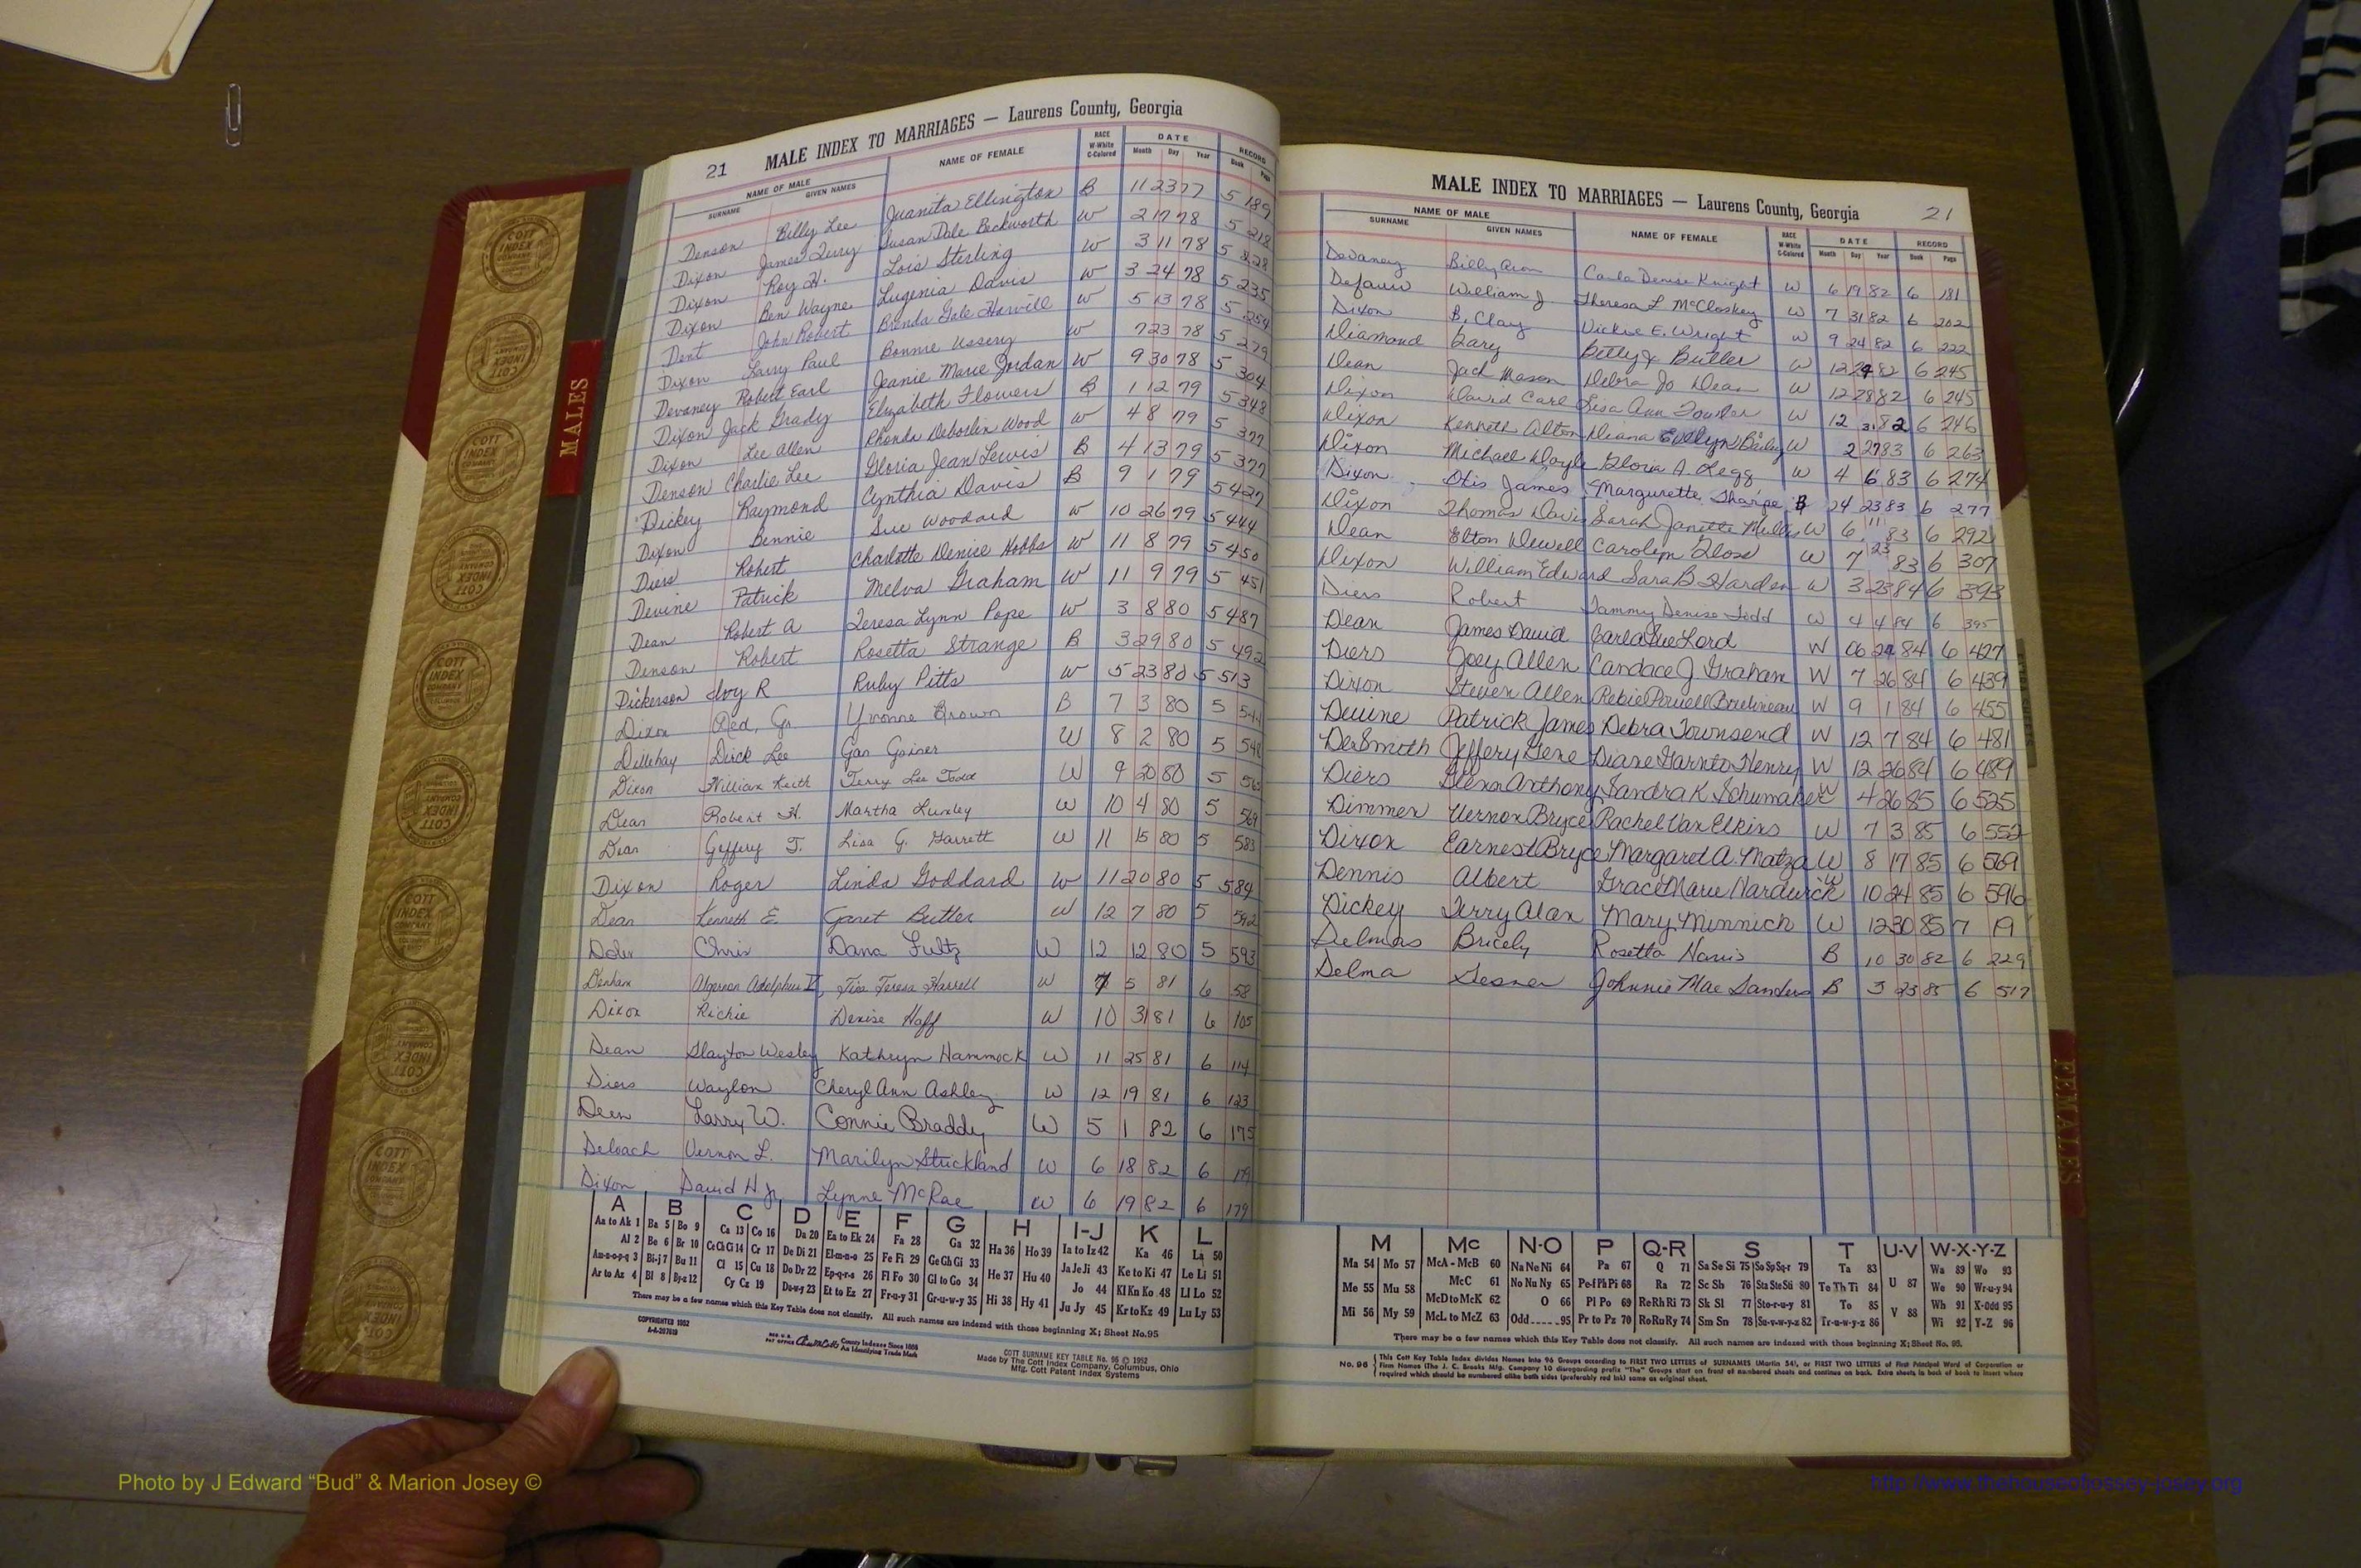 21 MALE INDEX TO MARRIAGES — Laurens County, Georgia
NAME OF MALE NAME OF FEMALE RACE W-White C-Colored DATE RECORD
SURNAME GIVEN NAMES Month Day Year Book Page
Denson Billy Lee Juanita Ellington B 11 23 77 5 189
Dixon James Terry Susan Dale Beckworth W 2 17 78 5 218
Dixon Roy H. Lois Sterling W 3 11 78 5 228
Dixon Ben Wayne Eugenia Davis W 3 24 78 5 235
Dent John Robert Brenda Gale Harvill W 5 13 78 5 254
Dixon Larry Paul Bonnie Ussery W 7 23 78 5 279
Devaney Robert Earl Jeanie Marie Jordan W 9 30 78 5 304
Dixon Jack Grady Elizabeth Flowers B 1 12 79 5 348
Dixon Lee Allen Rhonda Wood W 4 8 79 5 377
Denson Charlie Lee Gloria Jean Lewis B 4 13 79 5 377
Dickey Raymond Cynthia Davis B 9 1 79 5 427
Dixon Bennie Sue Woodard W 10 26 79 5 444
Diers Robert Charlotte Denise Hobbs W 11 8 79 5 450
Devine Patrick Melva Graham W 11 9 79 5 451
Dean Robert A Teresa Lynn Pope W 3 8 80 5 487
Denson Robert Rosetta Strange B 3 29 80 5 492
Dickerson Ivy R Ruby Pitts W 5 23 80 5 513
Dixon Yvonne Brown B 7 3 80 5
Dillehay Dick Lee Gainer W 8 2 80 5
Dixon William Keith Terry Lee Todd W 9 20 80 5
Dean Robert H. Martha Lumley W 10 4 80 5 569
Dean Geffery T. Lisa G. Garrett W 11 15 80 5 583
Dixon Roger Linda Goddard W 11 20 80 5 584
Dean Kenneth E. Garet Butler W 12 7 80 5 592
Chris Dana Fultz W 12 12 80 5 593
Denham Algernon Adolphus V Teresa Harrell W 7 5 81 6 58
Dixon Richie Denise Haff W 10 31 81 6 105
Dean Slayton Wesley Kathryn Hammock W 11 25 81 6 114
Diers Waylon Cheryl Ann Ashley W 12 19 81 6 123
Deen Larry W. Connie Braddy W 5 1 82 6 175
Deloach Vernon L. Marilyn Strickland W 6 18 82 6 179
Dixon David H Jr. Lynne McRae W 6 19 82 6 179
A B C D E F G H I-J K L
Aa to Ak 1 Ba 5 Bo 9 Ca 13 Co 16 Da 20 Ea to Ek 24 Fa 28 Ga 32 Ha 36 Ho 39 Ia to Iz 42 Ka 46 La 50
Al 2 Be 6 Br 10 Ce Ch Ci 14 Cr 17 De Di 21 El-m-n-o 25 Fe Fi 29 Ge Gh Gi 33 He 37 Hu 40 Ja Je Ji 43 Ke to Ki 47 Le Li 51
Am-n-o-p-q 3 Bi-j 7 Bu 11 Cl 15 Cu 18 Do Dr 22 Ep-q-r-s 26 Fl Fo 30 Gl to Go 34 Hi 38 Hy 41 Jo 44 Kl Kn Ko 48 Ll Lo 52
Ar to Az 4 Bl 8 By-z 12 Cy Cz 19 Du-w-y 23 Et to Ez 27 Fr-u-y 31 Gr-u-w-y 35 Ju Jy 45 Kr to Kz 49 Lu Ly 53
There may be a few names which this Key Table does not classify. All such names are indexed with those beginning X; Sheet No. 95
COPYRIGHTED 1952
A-A-207619
County Indexes Since 1888
An Identifying Trade Mark
COTT SURNAME KEY TABLE No. 96 © 1952
Made by The Cott Index Company, Columbus, Ohio
Mfg. Cott Patent Index Systems
MALE INDEX TO MARRIAGES — Laurens County, Georgia 21
NAME OF MALE NAME OF FEMALE RACE W-White C-Colored DATE RECORD
SURNAME GIVEN NAMES Month Day Year Book Page
Devaney Billy Aron Carla Denise Knight W 6 19 82 6 181
William J Theresa L McCloskey W 7 31 82 6 202
Dixon B. Clay Vickie E. Wright W 9 24 82 6 222
Diamond Gary Betty J Butler W 12 24 82 6 245
Dean Jack Mason Debra Jo Dean W 12 28 82 6 245
Dixon David Carl Lisa Ann Fowler W 12 31 82 6 246
Dixon Kenneth Alton Diana Evelyn Bailey W 2 27 83 6 263
Dixon Michael Doyle Gloria A. Legg W 4 6 83 6 274
Dixon Otis James Margurette Sharpe B 24 23 83 6 277
Dixon Thomas Davis Sarah Janette Mullis W 6 11 83 6 292
Dean Elton Dewell Carolyn Glass W 7 23 83 6 307
Dixon William Edward Sara B Harden W 3 23 84 6 393
Diers Robert Tammy Denise Todd W 4 4 84 6 395
Dean James David Carla Sue Lord W 06 24 84 6 427
Diers Joey Allen Candace J Graham W 7 26 84 6 439
Dixon Steven Allen Rebie Powell W 9 1 84 6 455
Devine Patrick James Debra Townsend W 12 7 84 6 481
DeSmith Jeffery Gene Diane Garnto Henry W 12 26 84 6 489
Diers Glenn Anthony Sandra K Schumaker W 4 26 85 6 525
Dimmer Vernon Bryce Rachel Van Elkins W 7 3 85 6 552
Dixon Earnest Bryce Margaret A. Matza W 8 17 85 6 569
Dennis Albert Grace Marie Hardwick W 10 24 85 6 596
Dickey Terry Alan Mary Minnich W 12 30 85 7 19
Delmas Bricely Rosetta Norris B 10 30 82 6 229
Delma Gesner Johnnie Mae Sanders B 3 23 85 6 517
M Mc N-O P Q-R S T U-V W-X-Y-Z
Ma 54 Mo 57 McA - McB 60 Na Ne Ni 64 Pa 67 Q 71 Sa Se Si 75 So Sp Sq-r 79 Ta 83 Wa 89 Wo 93
Me 55 Mu 58 McC 61 No Nu Ny 65 Pe-f Ph Pi 68 Ra 72 Sc Sh 76 Sta Ste Sti 80 Te Th Ti 84 U 87 We 90 Wr-u-y 94
McD to McK 62 O 66 Pl Po 69 Re Rh Ri 73 Sk Sl 77 Sto-r-u-y 81 To 85 Wh 91 X-Odd 95
Mi 56 My 59 McL to McZ 63 Odd-----95 Pr to Pz 70 Ro Ru Ry 74 Sm Sn 78 Su-v-w-y-z 82 Tr-u-w-y-z 86 V 88 Wi 92 Y-Z 96
There may be a few names which this Key Table does not classify. All such names are indexed with those beginning X; Sheet No. 95.
No. 96 This Cott Key Table Index divides Names into 96 Groups according to FIRST TWO LETTERS of SURNAMES (Martin 54), or FIRST TWO LETTERS of First Principal Word of Corporation or
Firm Names (The J. C. Brooks Mfg. Company 10 disregarding prefix "The" Groups start on front of numbered sheets and continue on back. Extra sheets in back of book to insert where
required which should be numbered alike both sides (preferably red ink) same as original sheet.
MALES
FEMALES
COTT INDEX COMPANY
Photo by J Edward “Bud” & Marion Josey ©
http://www.thehouseofjossey-josey.org